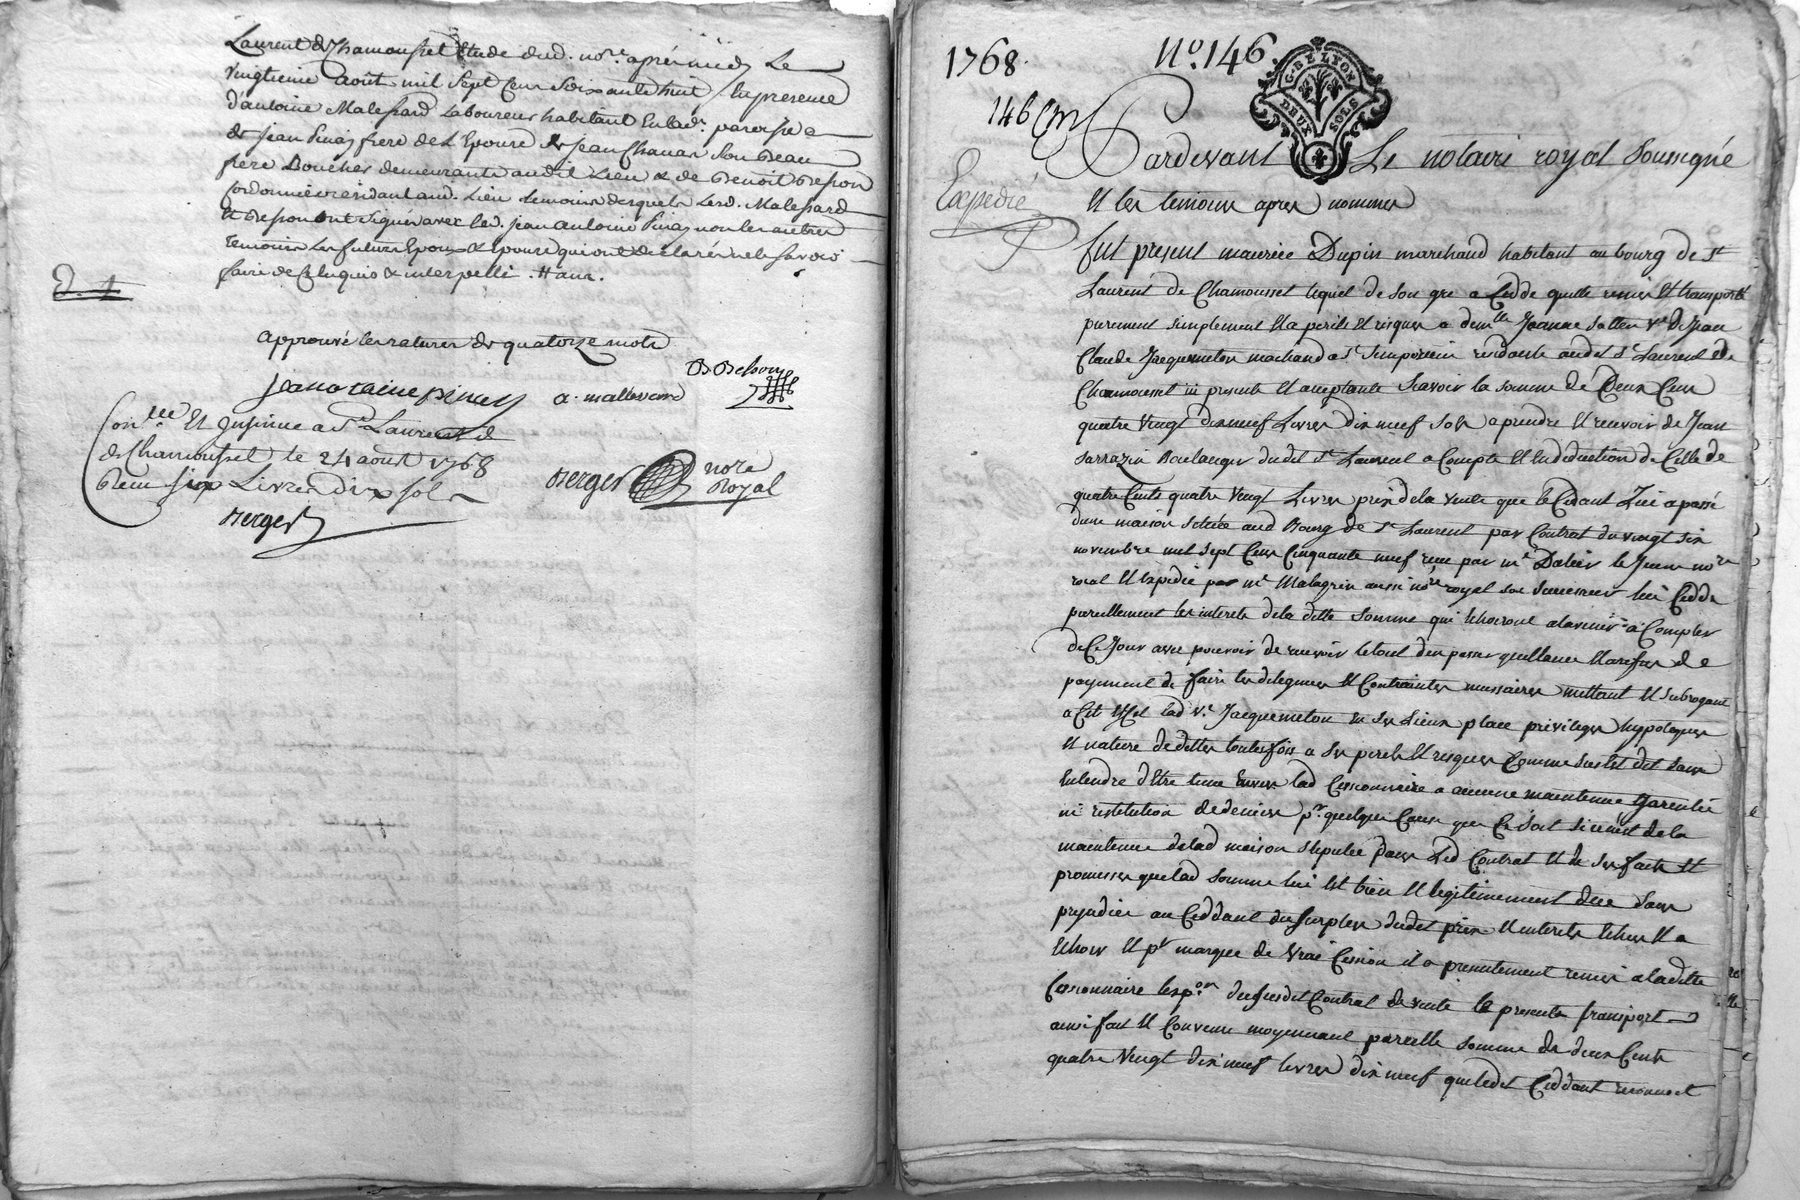 Laurent de Chamousset Etude dud. nore. après midy Le
vingtieme août mil sept Cens Soixante huit En presence
d'antoine Malessard Laboureur habitant En lad. paroisse
de jean Pinay frere de L'Epouse & jean Chavan Son Beau
frere Boucher demeurants audit Lieu & de Benoit Besson
Cordonnier residant aud. Lieu temoins desquels Lesd. Malessard
et Besson ont signés avec led. jean antoine Pinay non les autres
temoins les futurs Epoux & Epouse qui ont declaré ne le savoir
faire de Ce Enquis & interpellé
approuvé les ratures de quatorze mots
jean antoine pinay
a. mallessard
B Besson
Conlle Et Insinué a St Laurent
de Chamousset le 24 août 1768
Reçu six Livres dix sols
Berger
Berger nore Royal
1768. No. 146
G. DE LYON
DEUX SOLS
146
Expedié
Pardevant Le notaire royal soussigné
Et les temoins apres nommes
fut present maurice Dupin marchand habitant au bourg de St
Laurent de Chamousset lequel de son gre a Cedde quitte remis Et transporté
purement simplement Et a perils Et risques a demlle Jeanne sallen Ve de Jean
Claude Jacquemeton marchand a St simphorien residante audit St Laurent de
Chamousset ici presente Et acceptante scavoir la somme de Deux Cens
quatre vingt dix neuf Livres dix neuf sols a prendre Et recevoir de Jean
sarrazin Boulanger dudit St Laurent a Compte Et En deduction de Celle de
quatre Cents quatre vingt Livres prix de la vente que le Cedant Lui a passé
dune maison scituée aud Bourg de St Laurent par Contrat du vingt six
novembre mil sept Cens Cinquante neuf reçu par me Dalier le Jeune nore
roial Et Expedié par me Malagrin aussi nore royal son successeur lui Cedde
pareillement les interets de la ditte somme qui Echoiront alavenir a Compter
de Ce Jour avec pouvoir de recevoir le tout den passer quittance Et a refus de
payement de faire les diligences Et Contraintes necessaires mettant Et subrogeant
a Cet Effet lad ve Jacquemeton En ses Lieux place privileges hypoteques
Et nature de dettes toutesfois a ses perils Et risques Comme sus Est dit sans
Entendre d'Etre tenu Envers lad Cessionnaire a aucune maintenue garentie
ni restitution de deniers pr. quelque Cause que Ce soit si ce n'est de la
maintenue de lad maison stipulée dans Led Contrat Et de ses faits Et
promesses que lad somme lui Est bien Et legitimement due sans
prejudice au Ceddant du surplus dudit prix Et interets Echus Et a
Echoir Et pr marque de vraie Cession il a presentement remis a la ditte
Cessionnaire lexpon du susdit Contrat de vente le present transport
ainsi fait Et Convenu moyennant pareille somme de deux Cents
quatre vingt dix neuf livres dix neuf que ledit Ceddant reconnoit